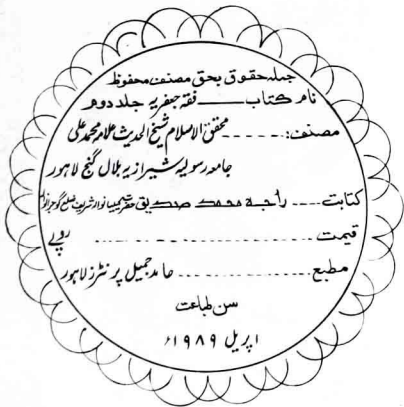 جملہ حقوق بحق مصنف محفوظ
نام کتاب ــــــ فقہ جعفریہ جلد دوم
مصنف: ----- محقق الاسلام شیخ الحدیث علامہ محمد علی
جامعہ رسولیہ شیرازیہ بلال گنج لاہور
کتابت ---- راجہ محمد صدیق حضرت کیلیانوالہ شریف ضلع گوجرانوالہ
قیمت ..................... روپے
مطبع ............ حامد جمیل پرنٹرز لاہور
سن طباعت
اپریل ۱۹۸۹ء